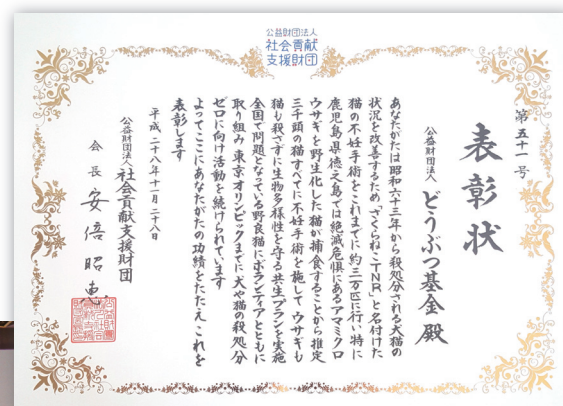 公益財団法人
社会貢献
支援財団
第五十一号
表彰状
公益財団法人 どうぶつ基金殿
あなたがたは昭和六十三年から殺処分される犬猫の
状況を改善するため「さくらねこTNR」と名付けた
猫の不妊手術をこれまでに約三万匹に行い特に
鹿児島県徳之島では絶滅危惧にあるアマミクロ
ウサギを野生化した猫が捕食することから推定
三千頭の猫すべてに不妊手術を施してウサギも
猫も殺さずに生物多様性を守る共生プランを実施
全国で問題となっている野良猫にボランティアとともに
取り組み東京オリンピックまでに犬や猫の殺処分
ゼロに向け活動を続けられています
よってここにあなたがたの功績をたたえこれを
表彰します
平成二十八年十一月二十八日
公益財団法人 社会貢献支援財団
会長 安倍昭恵